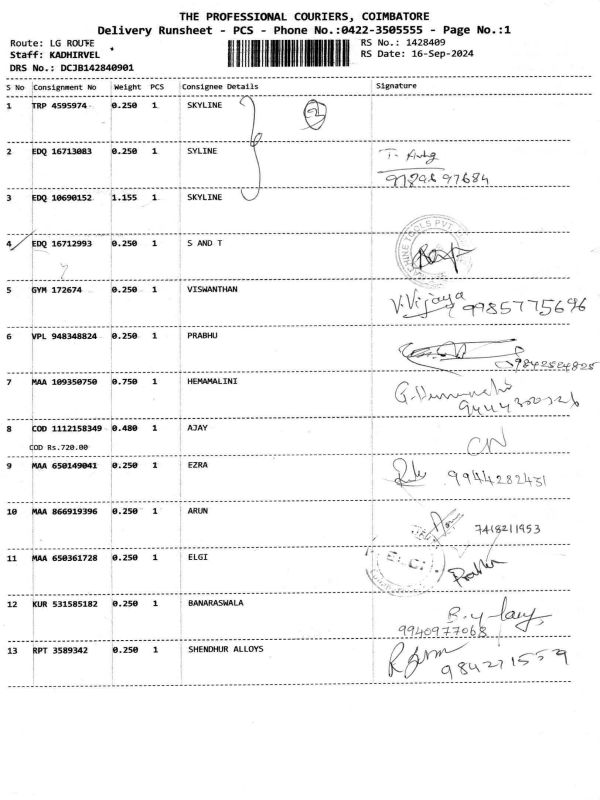 THE PROFESSIONAL COURIERS, COIMBATORE
Delivery Runsheet - PCS - Phone No.:0422-3505555 - Page No.:1
Route: LG ROUTE RS No.: 1428409
Staff: KADHIRVEL RS Date: 16-Sep-2024
DRS No.: DCJB142840901
S No Consignment No Weight PCS Consignee Details Signature
1 TRP 4595974 0.250 1 SKYLINE
2 EDQ 16713083 0.250 1 SYLINE
3 EDQ 10690152 1.155 1 SKYLINE
4 EDQ 16712993 0.250 1 S AND T
5 GYM 172674 0.250 1 VISWANTHAN V.Vijaya 9985775696
6 VPL 948348824 0.250 1 PRABHU
7 MAA 109350750 0.750 1 HEMAMALINI
8 COD 1112158349 0.480 1 AJAY
COD Rs.720.00 CN
9 MAA 650149041 0.250 1 EZRA 9944282431
10 MAA 866919396 0.250 1 ARUN 7418211953
11 MAA 650361728 0.250 1 ELGI ELGI
12 KUR 531585182 0.250 1 BANARASWALA
9940977068
13 RPT 3589342 0.250 1 SHENDHUR ALLOYS